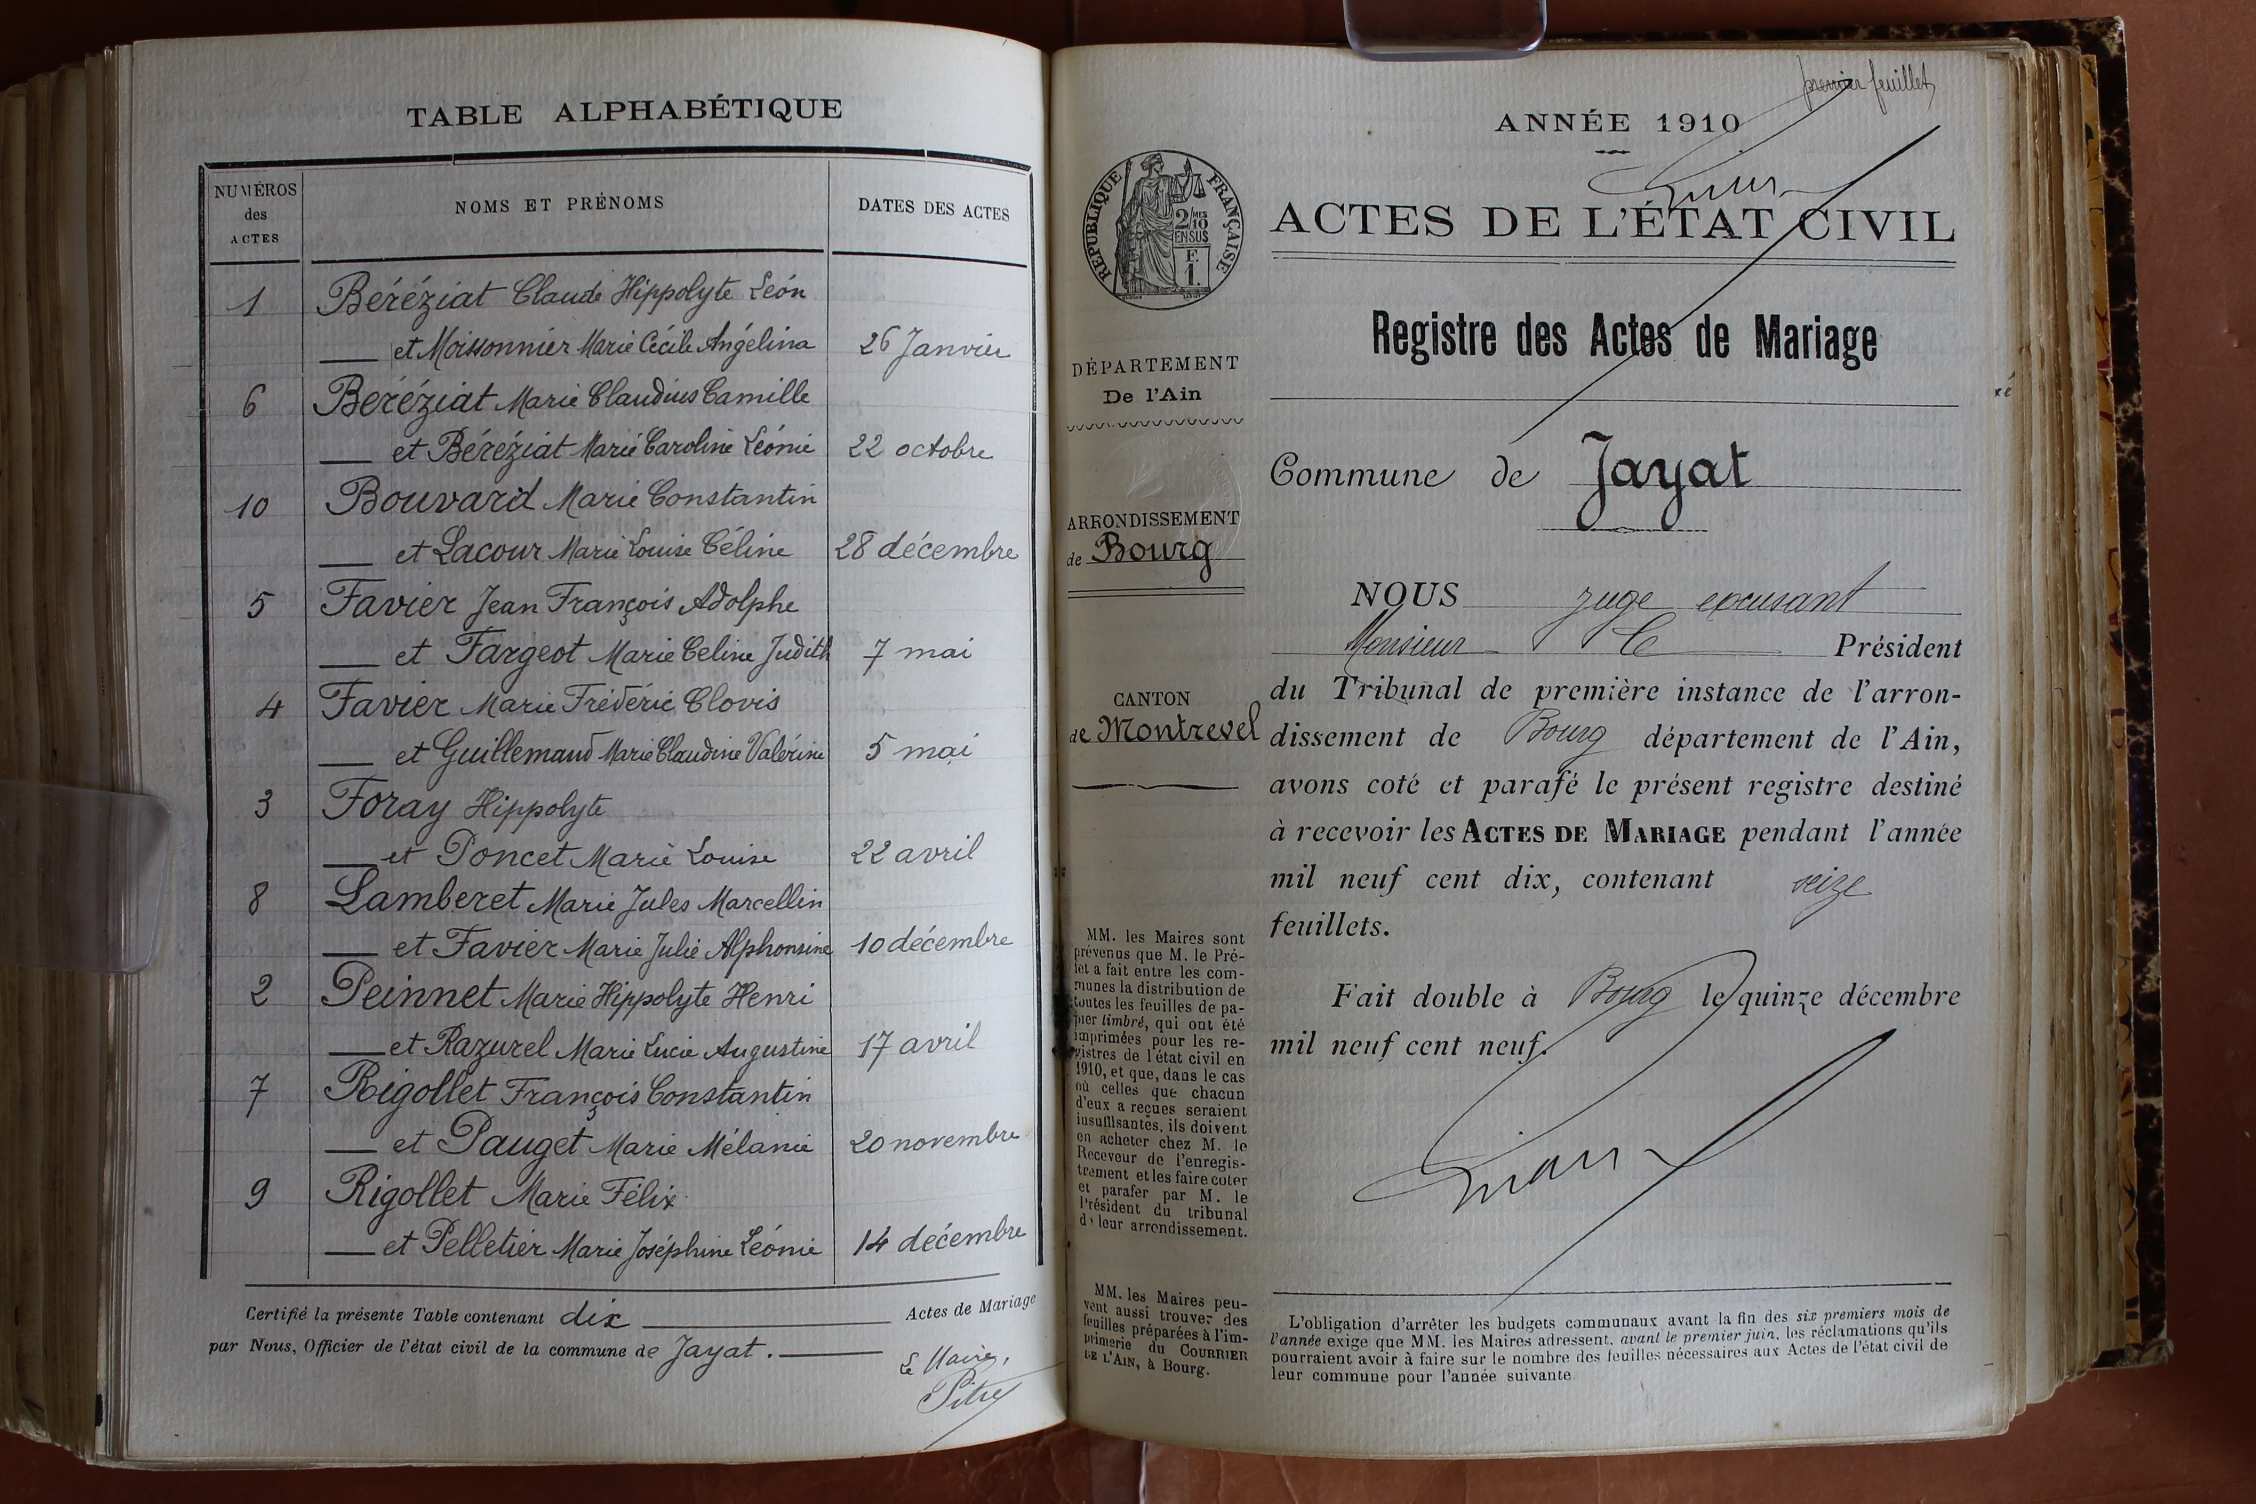 TABLE ALPHABÉTIQUE
NUMÉROS
des
ACTES
NOMS ET PRÉNOMS
DATES DES ACTES
1 Béréziat Claude Hippolyte Léon
et Moissonnier Marie Cécile Angélina 26 Janvier
6 Béréziat Marie Claudius Camille
et Béréziat Marie Caroline Léonie 22 octobre
10 Bouvard Marie Constantin
et Lacour Marie Louise Céline 28 décembre
5 Favier Jean François Adolphe
et Fargeot Marie Celine Judith 7 mai
4 Favier Marie Fréderic Clovis
et Guillemaud Marie Claudine Valérine 5 mai
3 Foray Hippolyte
et Poncet Marie Louise 22 avril
8 Lamberet Marie Jules Marcellin
et Favier Marie Julie Alphonsine 10 décembre
2 Peinnet Marie Hippolyte Henri
et Razurel Marie Lucie Augustine 17 avril
7 Rigollet François Constantin
et Pauget Marie Mélanie 20 novembre
9 Rigollet Marie Félix
et Pelletier Marie Joséphine Léonie 14 décembre
Certifié la présente Table contenant dix Actes de Mariage
par Nous, Officier de l'état civil de la commune de Jayat.
Le Maire,
Pitre
premier feuillet
ANNÉE 1910
RÉPUBLIQUE FRANÇAISE
2/10
EN SUS
F.
1.
ACTES DE L'ÉTAT CIVIL
Registre des Actes de Mariage
DÉPARTEMENT
De l'Ain
Commune de Jayat
ARRONDISSEMENT
de Bourg
CANTON
de Montrevel
NOUS juge excusant
Monsieur le Président
du Tribunal de première instance de l'arron-
dissement de Bourg département de l'Ain,
avons coté et parafé le présent registre destiné
à recevoir les ACTES DE MARIAGE pendant l'année
mil neuf cent dix, contenant seize
feuillets.
Fait double à Bourg le quinze décembre
mil neuf cent neuf.
MM. les Maires sont
prévenus que M. le Pré-
fet a fait entre les com-
munes la distribution de
toutes les feuilles de pa-
pier timbré, qui ont été
imprimées pour les re-
gistres de l'état civil en
1910, et que, dans le cas
où celles que chacun
d'eux a reçues seraient
insuffisantes, ils doivent
en acheter chez M. le
Receveur de l'enregis-
trement et les faire coter
et parafer par M. le
Président du tribunal
de leur arrondissement.
MM. les Maires peu-
vent aussi trouver des
feuilles préparées à l'im-
primerie du COURRIER
DE L'AIN, à Bourg.
L'obligation d'arrêter les budgets communaux avant la fin des six premiers mois de
l'année exige que MM. les Maires adressent, avant le premier juin, les réclamations qu'ils
pourraient avoir à faire sur le nombre des feuilles nécessaires aux Actes de l'état civil de
leur commune pour l'année suivante